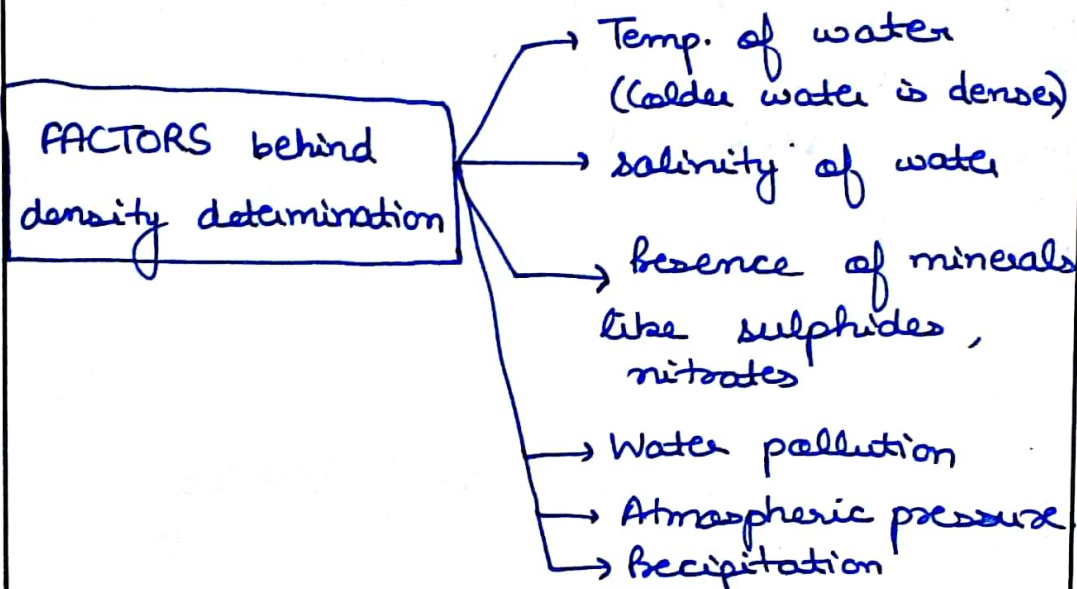 FACTORS behind
density determination
Temp. of water
(Colder water is denser)
salinity of water
Presence of minerals
like sulphides,
nitrates
Water pollution
Atmospheric pressure
Precipitation